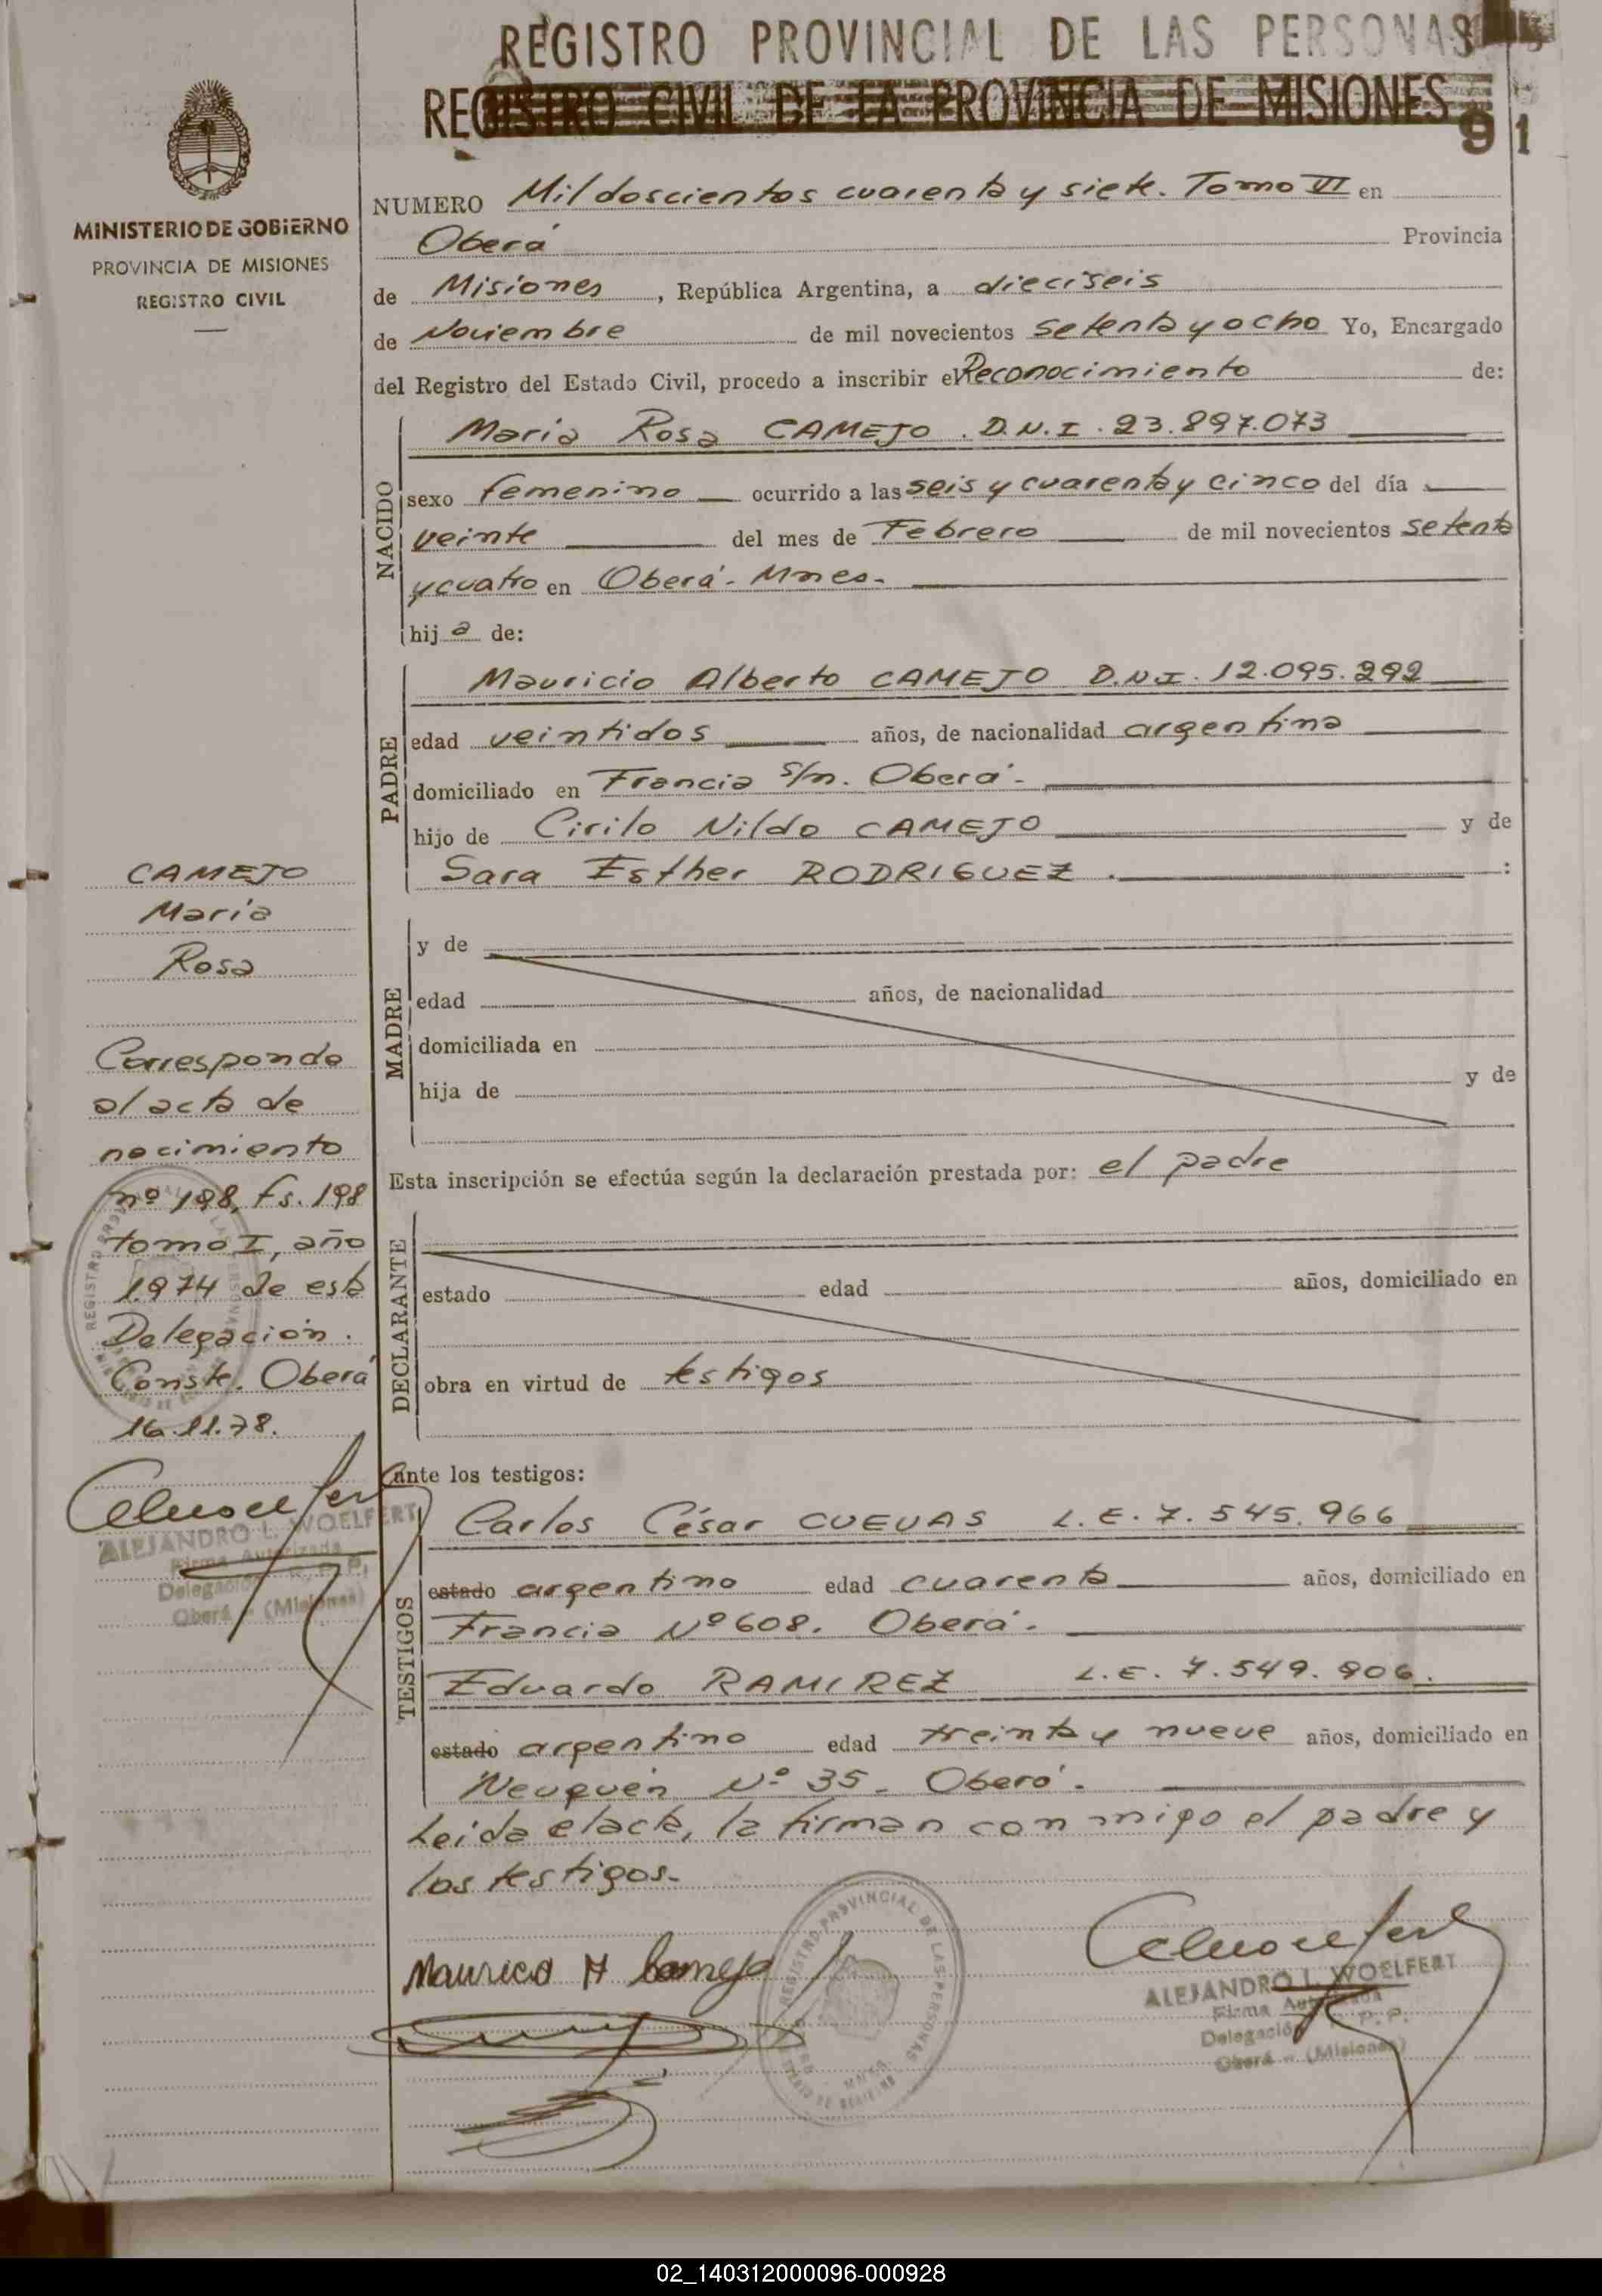 REGISTRO PROVINCIAL DE LAS PERSONAS
REGISTRO CIVIL DE LA PROVINCIA DE MISIONES
91
MINISTERIO DE GOBIERNO
PROVINCIA DE MISIONES
REGISTRO CIVIL
NUMERO Mil doscientos cuarenta y siete. Tomo VI en
Oberá Provincia
de Misiones, República Argentina, a dieciseis
de Noviembre de mil novecientos setenta y ocho Yo, Encargado
del Registro del Estado Civil, procedo a inscribir el Reconocimiento de:
NACIDO
Maria Rosa CAMEJO. D.N.I. 23.897.073
sexo femenino ocurrido a las seis y cuarenta y cinco del día
veinte del mes de Febrero de mil novecientos setenta
y cuatro en Oberá - Mnes.
hija de:
PADRE
Mauricio Alberto CAMEJO D.N.I. 12.095.292
edad veintidos años, de nacionalidad argentina
domiciliado en Francia s/n. Oberá.
hijo de Cirilo Nildo CAMEJO y de
Sara Esther RODRIGUEZ.:
MADRE
y de
edad años, de nacionalidad
domiciliada en
hija de y de
Esta inscripción se efectúa según la declaración prestada por: el padre
DECLARANTE
estado edad años, domiciliado en
obra en virtud de testigos
ante los testigos:
TESTIGOS
Carlos César CUEVAS L.E. 7.545.966
estado argentino edad cuarenta años, domiciliado en
Francia Nº 608. Oberá.
Eduardo RAMIREZ L.E. 7.549.906.
estado argentino edad treinta y nueve años, domiciliado en
Neuquén Nº 35. Oberá.
Leida el acta, la firman conmigo el padre y
los testigos.
Mauricio A Camejo
REGISTRO PROVINCIAL DE LAS PERSONAS
ALEJANDRO L. WOELFERT
Firma Autorizada
Delegación R. P. P.
Oberá - (Misiones)
CAMEJO
Maria
Rosa
Corresponde
al acta de
nacimiento
nº 198, Fs. 198
tomo I, año
1974 de esta
Delegación.
Conste. Oberá
16.11.78.
ALEJANDRO L. WOELFERT
Firma Autorizada
Delegación R. P. P.
Oberá - (Misiones)
02_140312000096-000928